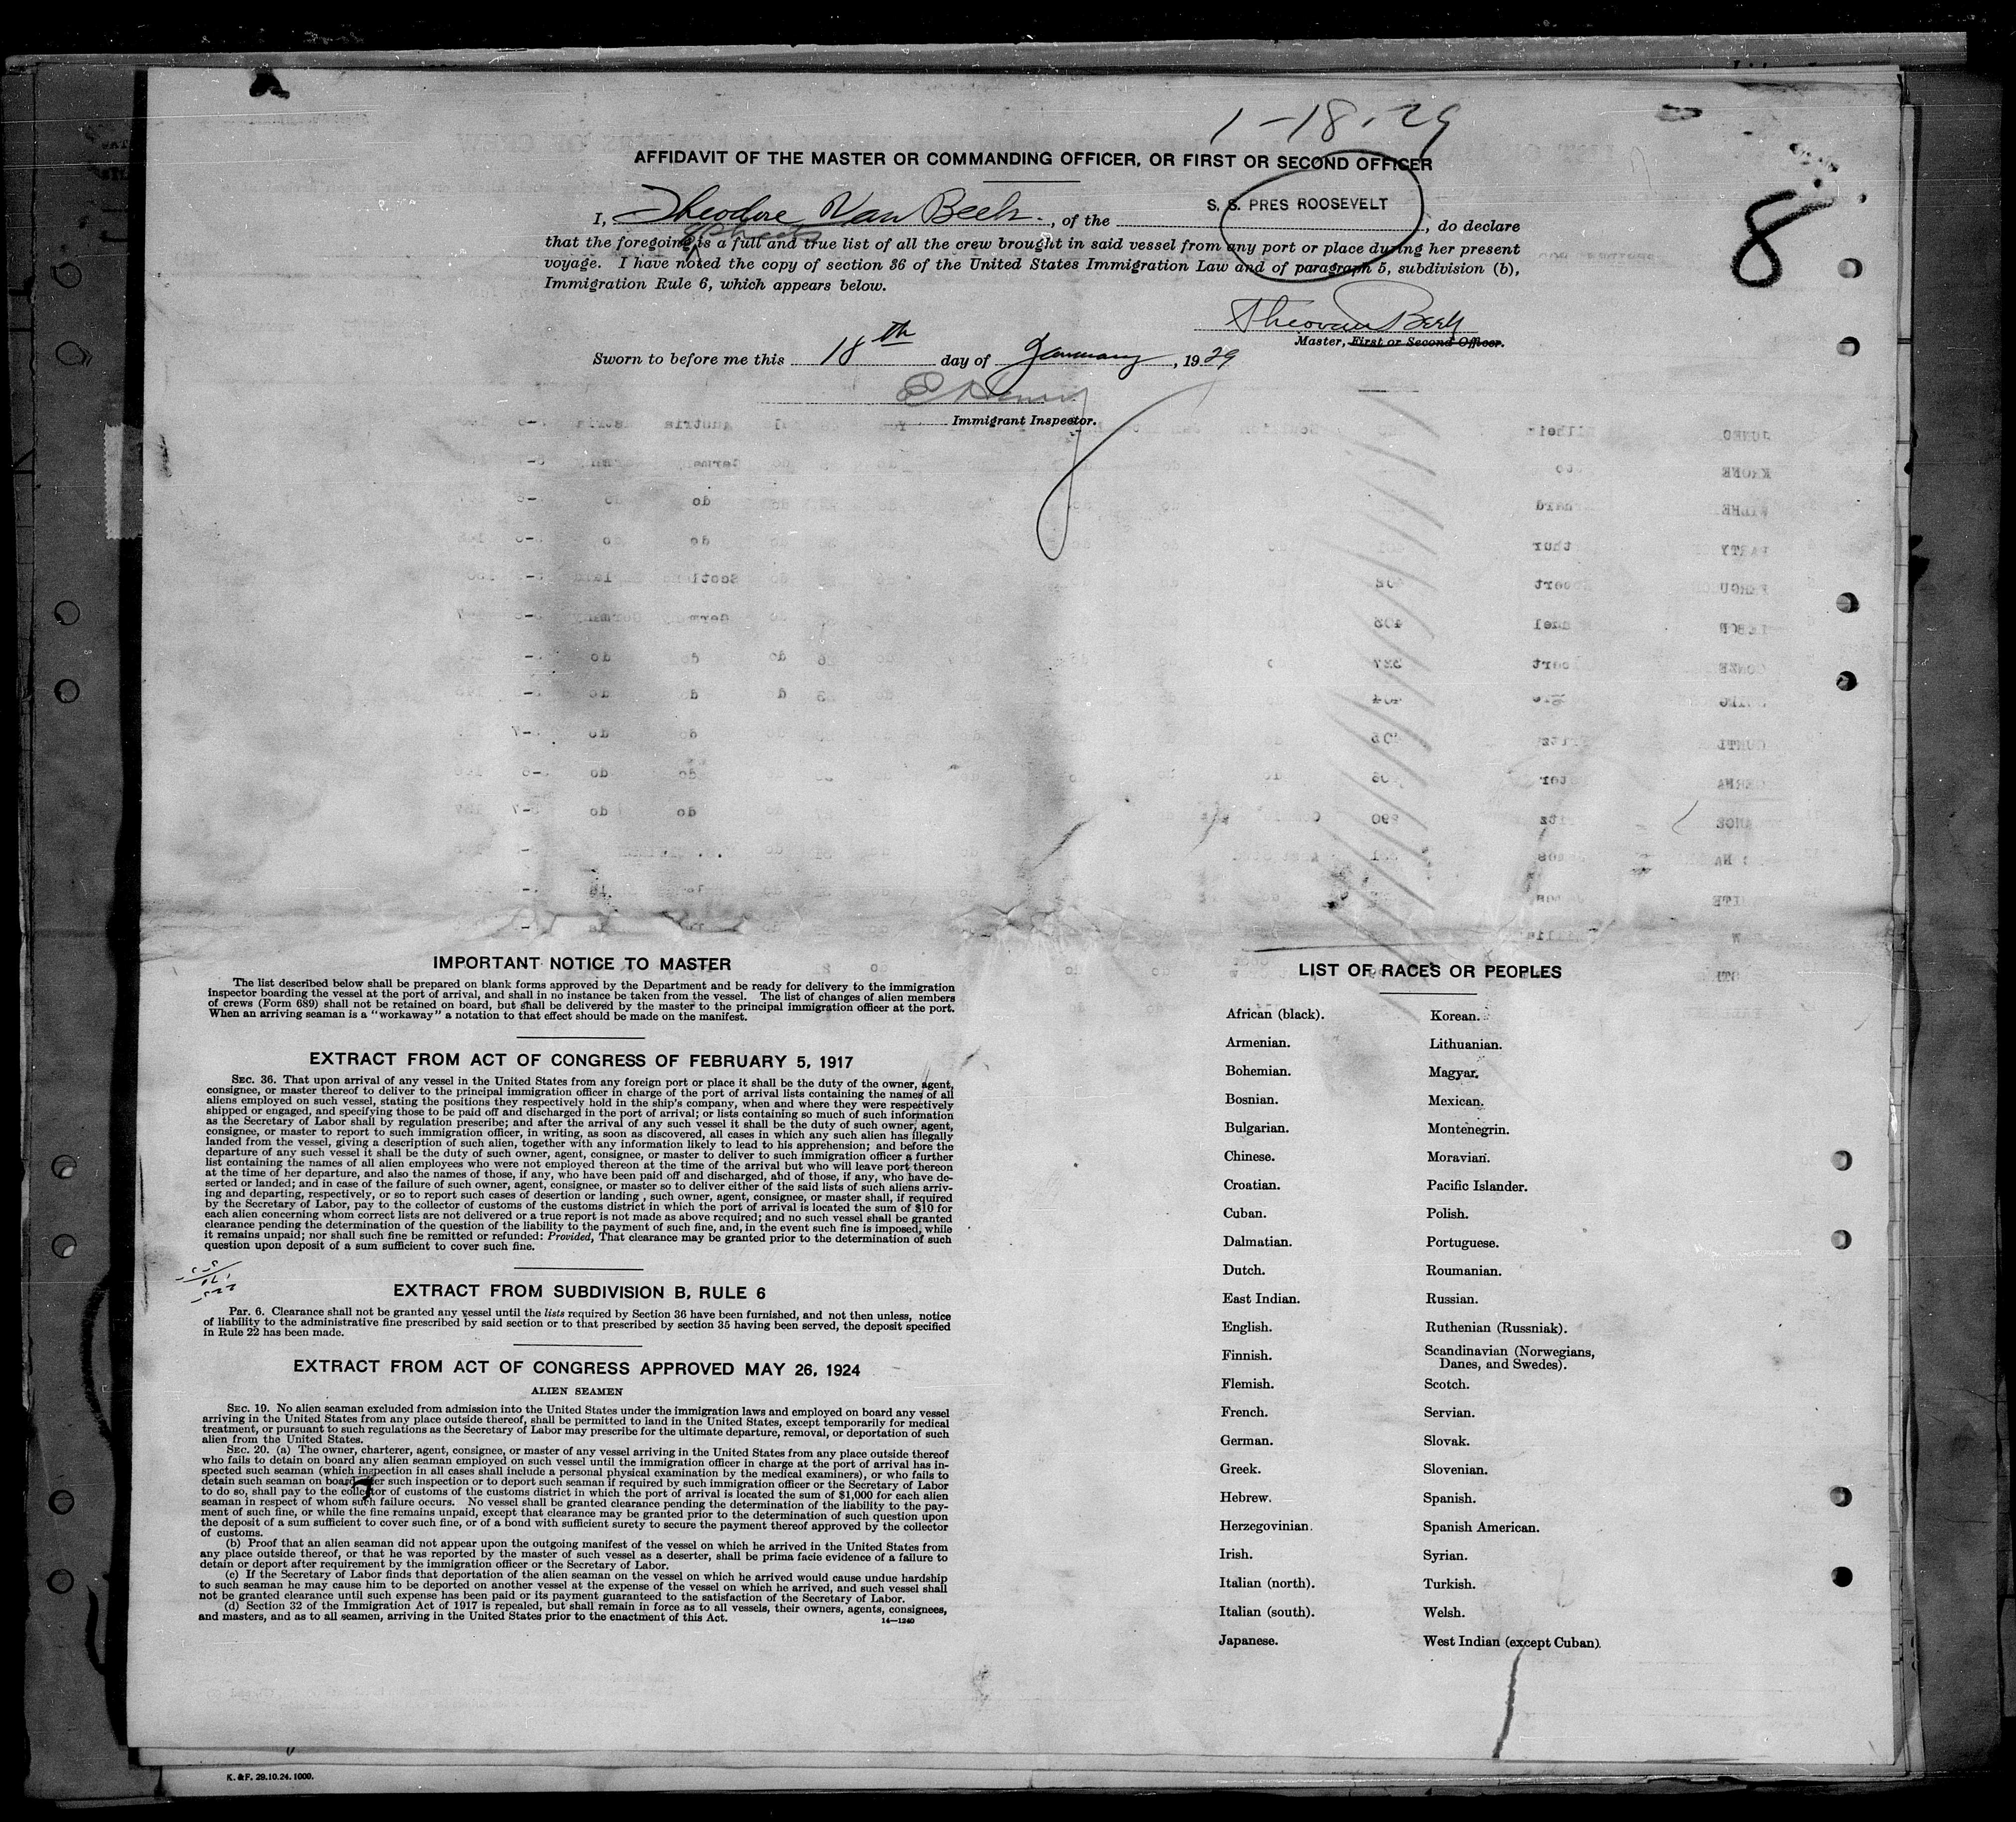 1-18-29
AFFIDAVIT OF THE MASTER OR COMMANDING OFFICER, OR FIRST OR SECOND OFFICER
8
I, Theodore Van Beek, of the S. S. PRES ROOSEVELT, do declare
8 Sheets
that the foregoing is a full and true list of all the crew brought in said vessel from any port or place during her present
voyage. I have noted the copy of section 36 of the United States Immigration Law and of paragraph 5, subdivision (b),
Immigration Rule 6, which appears below.
Theo van Beek
Master, First or Second Officer.
Sworn to before me this 18th day of January, 1929
Immigrant Inspector.
IMPORTANT NOTICE TO MASTER
The list described below shall be prepared on blank forms approved by the Department and be ready for delivery to the immigration
inspector boarding the vessel at the port of arrival, and shall in no instance be taken from the vessel. The list of changes of alien members
of crews (Form 689) shall not be retained on board, but shall be delivered by the master to the principal immigration officer at the port.
When an arriving seaman is a "workaway" a notation to that effect should be made on the manifest.
EXTRACT FROM ACT OF CONGRESS OF FEBRUARY 5, 1917
SEC. 36. That upon arrival of any vessel in the United States from any foreign port or place it shall be the duty of the owner, agent,
consignee, or master thereof to deliver to the principal immigration officer in charge of the port of arrival lists containing the names of all
aliens employed on such vessel, stating the positions they respectively hold in the ship's company, when and where they were respectively
shipped or engaged, and specifying those to be paid off and discharged in the port of arrival; or lists containing so much of such information
as the Secretary of Labor shall by regulation prescribe; and after the arrival of any such vessel it shall be the duty of such owner, agent,
consignee, or master to report to such immigration officer, in writing, as soon as discovered, all cases in which any such alien has illegally
landed from the vessel, giving a description of such alien, together with any information likely to lead to his apprehension; and before the
departure of any such vessel it shall be the duty of such owner, agent, consignee, or master to deliver to such immigration officer a further
list containing the names of all alien employees who were not employed thereon at the time of the arrival but who will leave port thereon
at the time of her departure, and also the names of those, if any, who have been paid off and discharged, ahd of those, if any, who have de-
serted or landed; and in case of the failure of such owner, agent, consignee, or master so to deliver either of the said lists of such aliens arriv-
ing and departing, respectively, or so to report such cases of desertion or landing , such owner, agent, consignee, or master shall, if required
by the Secretary of Labor, pay to the collector of customs of the customs district in which the port of arrival is located the sum of $10 for
each alien concerning whom correct lists are not delivered or a true report is not made as above required; and no such vessel shall be granted
clearance pending the determination of the question of the liability to the payment of such fine, and, in the event such fine is imposed, while
it remains unpaid; nor shall such fine be remitted or refunded: Provided, That clearance may be granted prior to the determination of such
question upon deposit of a sum sufficient to cover such fine.
EXTRACT FROM SUBDIVISION B, RULE 6
Par. 6. Clearance shall not be granted any vessel until the lists required by Section 36 have been furnished, and not then unless, notice
of liability to the administrative fine prescribed by said section or to that prescribed by section 35 having been served, the deposit specified
in Rule 22 has been made.
EXTRACT FROM ACT OF CONGRESS APPROVED MAY 26, 1924
ALIEN SEAMEN
SEC. 19. No alien seaman excluded from admission into the United States under the immigration laws and employed on board any vessel
arriving in the United States from any place outside thereof, shall be permitted to land in the United States, except temporarily for medical
treatment, or pursuant to such regulations as the Secretary of Labor may prescribe for the ultimate departure, removal, or deportation of such
alien from the United States.
SEC. 20. (a) The owner, charterer, agent, consignee, or master of any vessel arriving in the United States from any place outside thereof
who fails to detain on board any alien seaman employed on such vessel until the immigration officer in charge at the port of arrival has in-
spected such seaman (which inspection in all cases shall include a personal physical examination by the medical examiners), or who fails to
detain such seaman on board after such inspection or to deport such seaman if required by such immigration officer or the Secretary of Labor
to do so, shall pay to the collector of customs of the customs district in which the port of arrival is located the sum of $1,000 for each alien
seaman in respect of whom such failure occurs. No vessel shall be granted clearance pending the determination of the liability to the pay-
ment of such fine, or while the fine remains unpaid, except that clearance may be granted prior to the determination of such question upon
the deposit of a sum sufficient to cover such fine, or of a bond with sufficient surety to secure the payment thereof approved by the collector
of customs.
(b) Proof that an alien seaman did not appear upon the outgoing manifest of the vessel on which he arrived in the United States from
any place outside thereof, or that he was reported by the master of such vessel as a deserter, shall be prima facie evidence of a failure to
detain or deport after requirement by the immigration officer or the Secretary of Labor.
(c) If the Secretary of Labor finds that deportation of the alien seaman on the vessel on which he arrived would cause undue hardship
to such seaman he may cause him to be deported on another vessel at the expense of the vessel on which he arrived, and such vessel shall
not be granted clearance until such expense has been paid or its payment guaranteed to the satisfaction of the Secretary of Labor.
(d) Section 32 of the Immigration Act of 1917 is repealed, but shall remain in force as to all vessels, their owners, agents, consignees,
and masters, and as to all seamen, arriving in the United States prior to the enactment of this Act.
14—1240
LIST OF RACES OR PEOPLES
African (black).
Armenian.
Bohemian.
Bosnian.
Bulgarian.
Chinese.
Croatian.
Cuban.
Dalmatian.
Dutch.
East Indian.
English.
Finnish.
Flemish.
French.
German.
Greek.
Hebrew.
Herzegovinian.
Irish.
Italian (north).
Italian (south).
Japanese.
Korean.
Lithuanian.
Magyar.
Mexican.
Montenegrin.
Moravian.
Pacific Islander.
Polish.
Portuguese.
Roumanian.
Russian.
Ruthenian (Russniak).
Scandinavian (Norwegians,
Danes, and Swedes).
Scotch.
Servian.
Slovak.
Slovenian.
Spanish.
Spanish American.
Syrian.
Turkish.
Welsh.
West Indian (except Cuban).
K. & F. 29.10.24.1000.